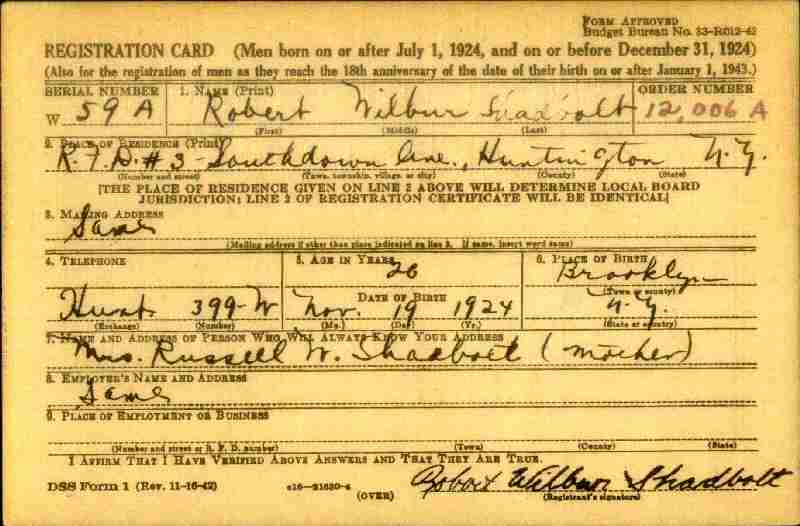 FORM APPROVED
Budget Bureau No. 33-R012-42
REGISTRATION CARD (Men born on or after July 1, 1924, and on or before December 31, 1924)
(Also for the registration of men as they reach the 18th anniversary of the date of their birth on or after January 1, 1943.)
SERIAL NUMBER 1. NAME (Print) ORDER NUMBER
W 59A Robert Wilbur Shadbolt 12,006 A
(First) (Middle) (Last)
2. PLACE OF RESIDENCE (Print)
R.F.D. #3 - Southdown Huntington N.Y.
(Number and street) (Town, township, village, or city) (County) (State)
[THE PLACE OF RESIDENCE GIVEN ON LINE 2 ABOVE WILL DETERMINE LOCAL BOARD
JURISDICTION; LINE 2 OF REGISTRATION CERTIFICATE WILL BE IDENTICAL]
3. MAILING ADDRESS
Same
(Mailing address if other than place indicated on line 2. If same, insert word same)
4. TELEPHONE 5. AGE IN YEARS 6. PLACE OF BIRTH
Brooklyn
DATE OF BIRTH (Town or county)
Hunt 399-W Nov. 19 1924 N.Y.
(Exchange) (Number) (Mo.) (Day) (Yr.) (State or country)
7. NAME AND ADDRESS OF PERSON WHO WILL ALWAYS KNOW YOUR ADDRESS
Mrs. Russell W. Shadbolt (mother)
8. EMPLOYER'S NAME AND ADDRESS
Same
9. PLACE OF EMPLOYMENT OR BUSINESS
(Number and street or R. F. D. number) (Town) (County) (State)
I AFFIRM THAT I HAVE VERIFIED ABOVE ANSWERS AND THAT THEY ARE TRUE.
DSS Form 1 (Rev. 11-16-42) c16-21630-4 (OVER) Robert Wilbur Shadbolt
(Registrant's signature)